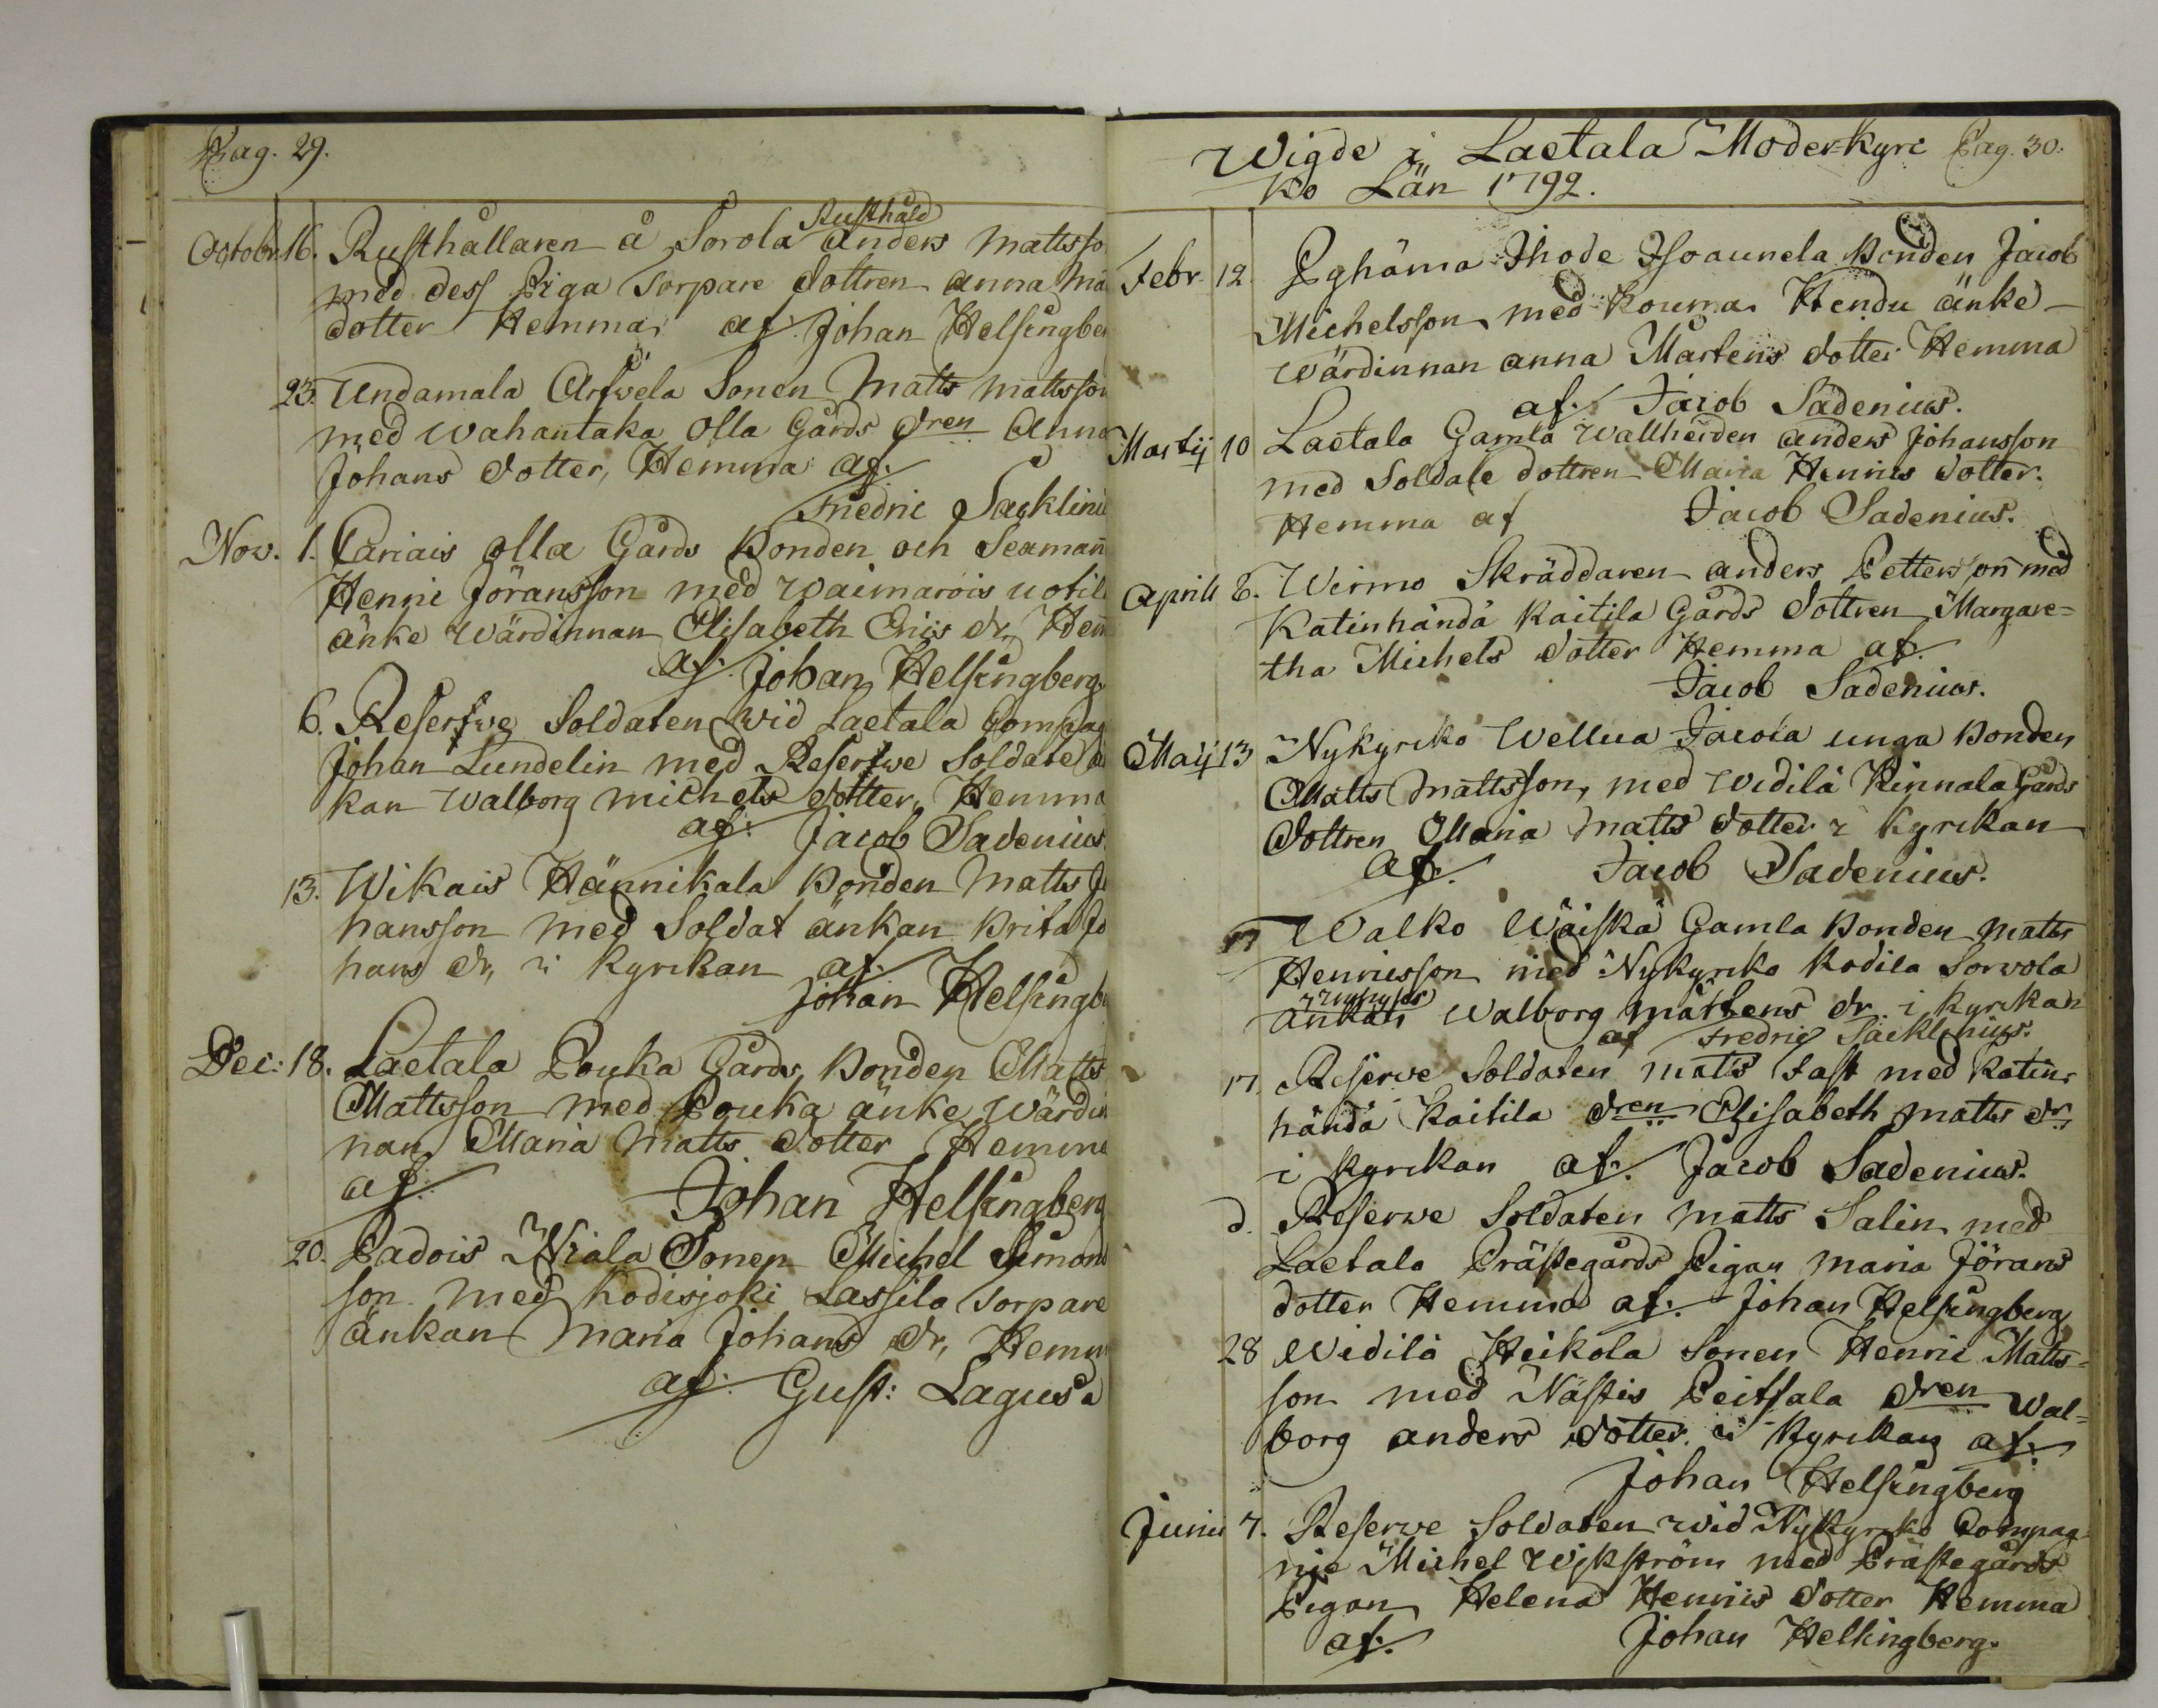 Pag. 29.
Rusthåld
Octobr. 16. Rusthållaren å Sorola Anders Mattsso
med dess Piga Torpare dottren Anna Ma
dotter Hemma af. Johan Helsingber
23. Undamala Arfwela Sonen Matts Mattsson
med Wahantaka Olla Gårds dren Anna
Johans dotter, Hemma af.
Fredric Sacklinii
Nov. 1. Cariais Olla Gårds Bonden och Sexman
Henric Jöransson med Waimarois uotil
änke Wärdinnan Elisabeth Erics dr, Hem
af. Johan Helsingberg
6. Reserfwe Soldaten wid Laetala Compag
Johan Lundelin med Reserfwe Soldate
kan Walborg Michels dotter, Hemma
af. Jacob Sadenius.
13. Wikais Hännikala Bonden Matts Jo
hansson med Soldat änkan Brita Jo
hans dr, i Kyrckan af.
Johan Helsingb
Dec: 18. Laetala Pouka Gårds Bonden Matts
Mattsson med Pouka änke Wärdin
nan Maria Matts dotter Hemma
af.
Johan Helsingberg
20. Padois Niala Sonen Michel Simons
son med Kodisjoki Lassila Torpare
änkan Maria Johans dr, Hemm
af. Gust: Lagus
Wigde i Laetala Moder-Kyrc Pag. 30.
ko Län 1792.
Febr. 12. Pyhäma Ihode Isoaunela Bonden Jacob
Michelsson med Kouma Hendu änke-
wärdinnan Anna Mårtens dotter Hemma
af. Jacob Sadenius.
Martij 10 Laetala Gamla Wallherden Anders Johansson
med Soldate dottren Maria Henrics dotter.
Hemma af Jacob Sadenius.
Aprill 6. Wirmo Skräddaren Anders Petterson med
Katinhändä Kaitila Gårds dottren Margare=
tha Michels dotter Hemma af.
Jacob Sadenius.
Maij 13 Nykyrcko Wellua Jacola unga Bonden
Matts Mattsson, med Widilä Kinnala Gårds
dottren Maria Matts dotter i Kyrckan
af. Jacob Sadenius.
17 Walko Wäiskä Gamla Bonden Matts
Henricsson med Nykyrcko Kodila Sorwola
änkan Walborg Mårtens dr. i Kyrckan
af Fredric Sacklinius.
17. Reserve Soldaten Matts Fast med Katin-
händä Kaitila dren Elisabeth Matts dr
i Kyrckan af. Jacob Sadenius.
d. Reserwe Soldaten Matts Salin med
Laetala Prästegårds Pigan Maria Jörans
dotter Hemma af. Johan Helsingberg
28 Widilä Heikola Sonen Henric Matts=
son med Nästis Peitsala dren Wal=
borg Anders dotter i Kyrckan af.
Johan Helsingberg
Junii 7. Reserve Soldaten wid Nykyrcko Compag
nie Michel Wijkström med Prästegårds
Pigan Helena Henrics dotter Hemma
af. Johan Helsingberg.